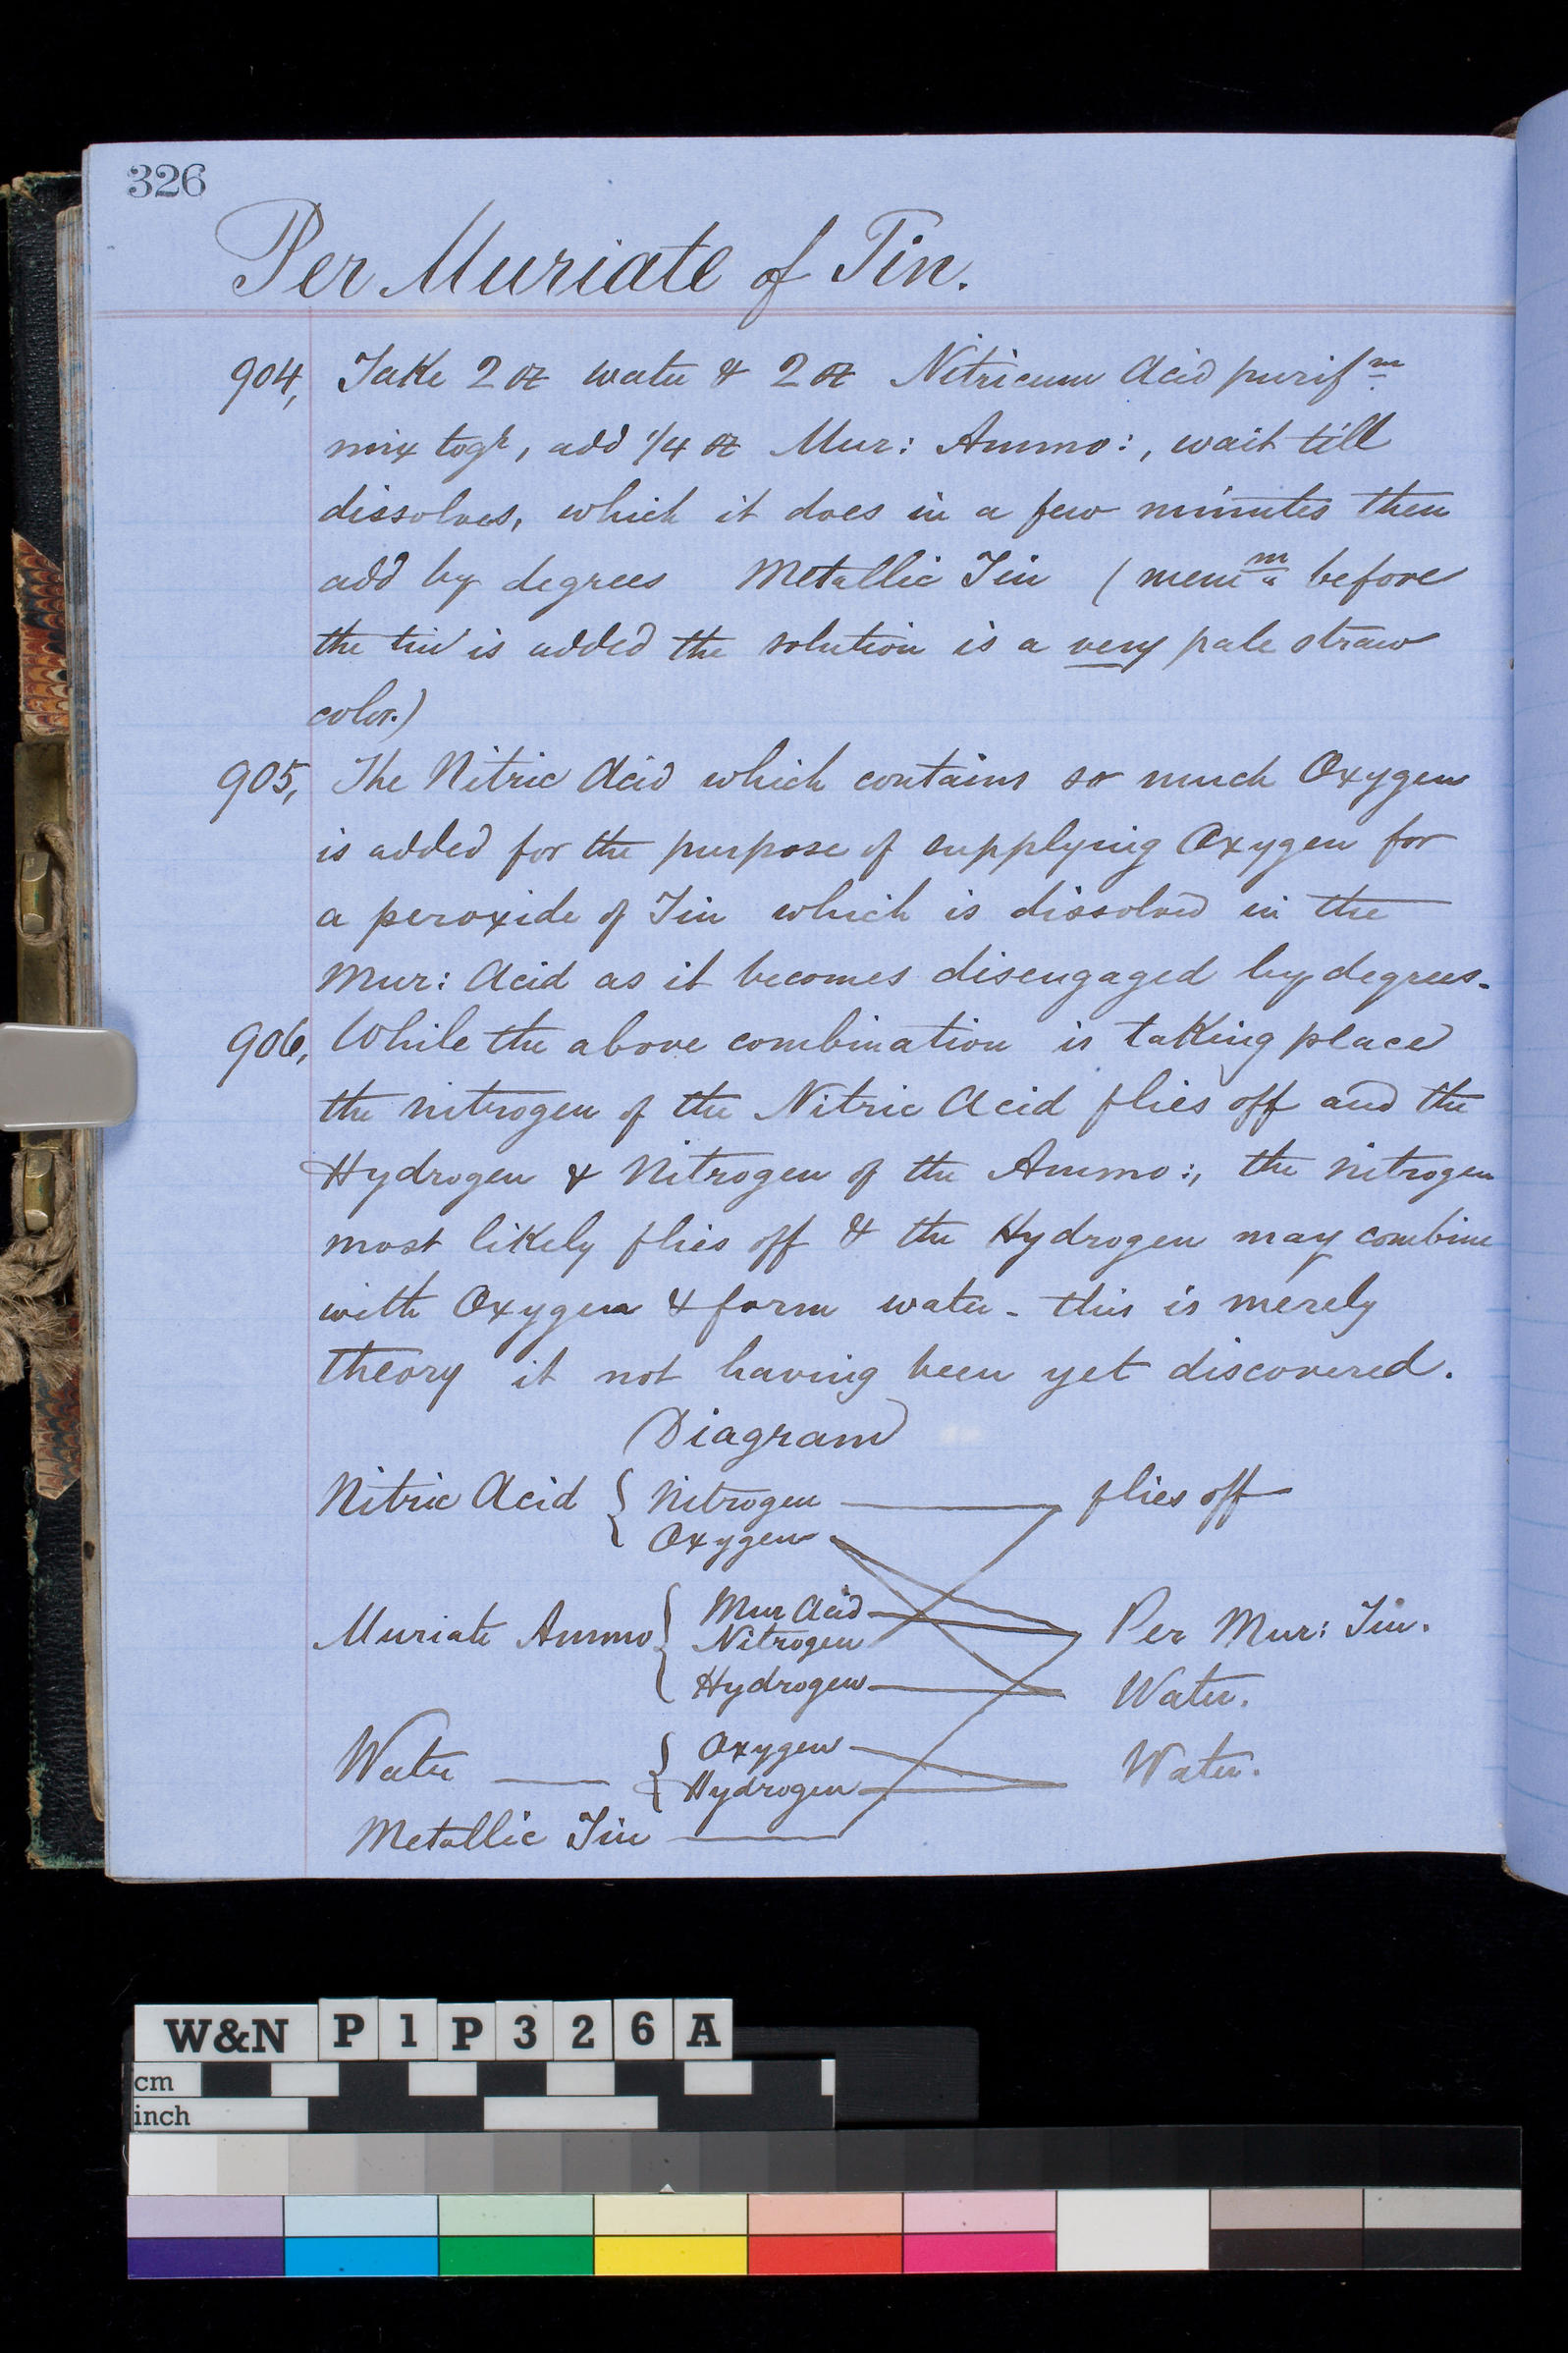 326
Per Muriate of Tin.
904, Take 2 oz water & 2 oz Nitricum Acid purifm
mix togr, add 1/4 oz Mur: Ammo:, wait till
dissolves, which it does in a few minutes then
add by degrees Metallic Tin (memm before
the tin is added the solution is a very pale straw
color.)
905, The Nitric Acid which contains so much Oxygen
is added for the purpose of supplying Oxygen for
a peroxide of Tin which is dissolved in the
Mur: Acid as it becomes disengaged by degrees.
906, While the above combination is taking place
the nitrogen of the Nitric Acid flies off and the
Hydrogen & Nitrogen of the Ammo:, the nitrogen
most likely flies off & the Hydrogen may combine
with Oxygen & form water - this is merely
theory it not having been yet discovered.
Diagram
Nitric Acid { Nitrogen flies off
Oxygen
Muriate Ammo { Mur Acid
Nitrogen Per Mur: Tin.
Hydrogen Water.
Water { Oxygen
Hydrogen Water.
Metallic Tin
W&N P1P326A
cm
inch